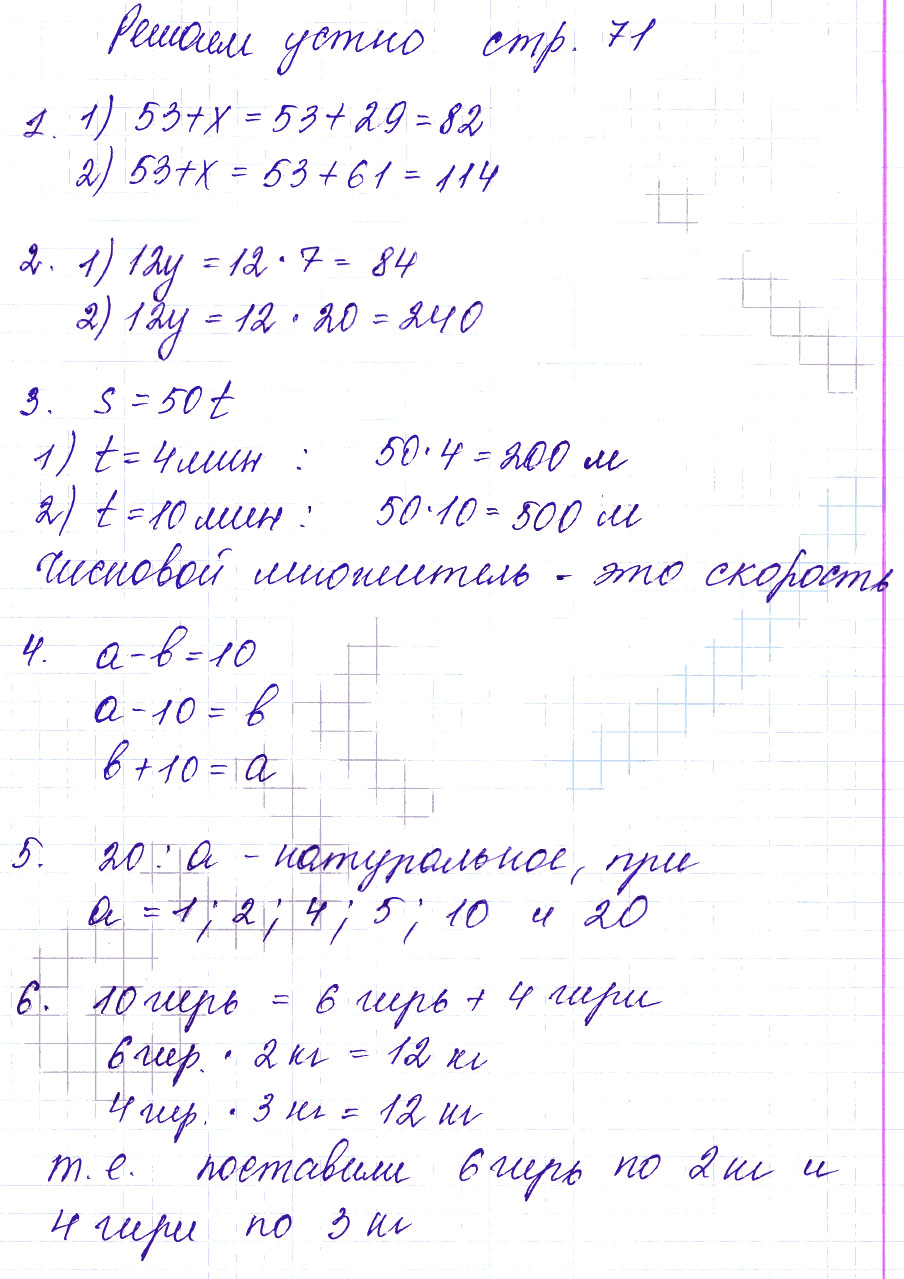 Решаем устно стр. 71
1. 1) 53+x = 53+29 = 82
2) 53+x = 53+61 = 114
2. 1) 12y = 12·7 = 84
2) 12y = 12·20 = 240
3. s = 50t
1) t = 4 мин : 50·4 = 200 м
2) t = 10 мин : 50·10 = 500 м
Числовой множитель - это скорость
4. a - b = 10
a - 10 = b
b + 10 = a
5. 20 : a - натуральное, при
a = 1; 2; 4; 5; 10 и 20
6. 10 гирь = 6 гирь + 4 гири
6 гир. · 2 кг = 12 кг
4 гир. · 3 кг = 12 кг
т.е. поставили 6 гирь по 2 кг и
4 гири по 3 кг